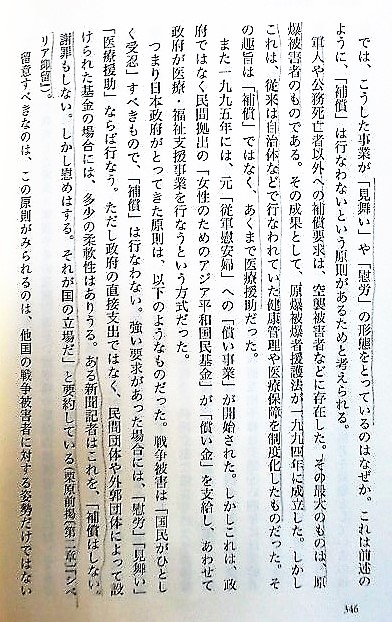 では、こうした事業が「見舞い」や「慰労」の形態をとっているのはなぜか。これは前述の
ように、「補償」は行なわないという原則があるためと考えられる。
軍人や公務死亡者以外への補償要求は、空襲被害者などに存在した。その最大のものは、原
爆被害者のものである。その成果として、原爆被爆者援護法が一九九四年に成立した。しかし
これは、従来は自治体などで行なわれていた健康管理や医療保障を制度化したものだった。そ
の趣旨は「補償」ではなく、あくまで医療援助だった。
また一九九五年には、元「従軍慰安婦」への「償い事業」が開始された。しかしこれは、政
府ではなく民間拠出の「女性のためのアジア平和国民基金」が「償い金」を支給し、あわせて
政府が医療・福祉支援事業を行なうという方式だった。
つまり日本政府がとってきた原則は、以下のようなものだった。戦争被害は「国民がひとし
く受忍」すべきもので、「補償」は行なわない。強い要求があった場合には、「慰労」「見舞い」
「医療援助」ならば行なう。ただし政府の直接支出ではなく、民間団体や外郭団体によって設
けられた基金の場合には、多少の柔軟性はありうる。ある新聞記者はこれを、「補償はしない。
謝罪もしない。しかし慰めはする。それが国の立場だ」と要約している(栗原前掲(第二章)『シベ
リア抑留』)。
留意すべきなのは、この原則がみられるのは、他国の戦争被害者に対する姿勢だけではない
346